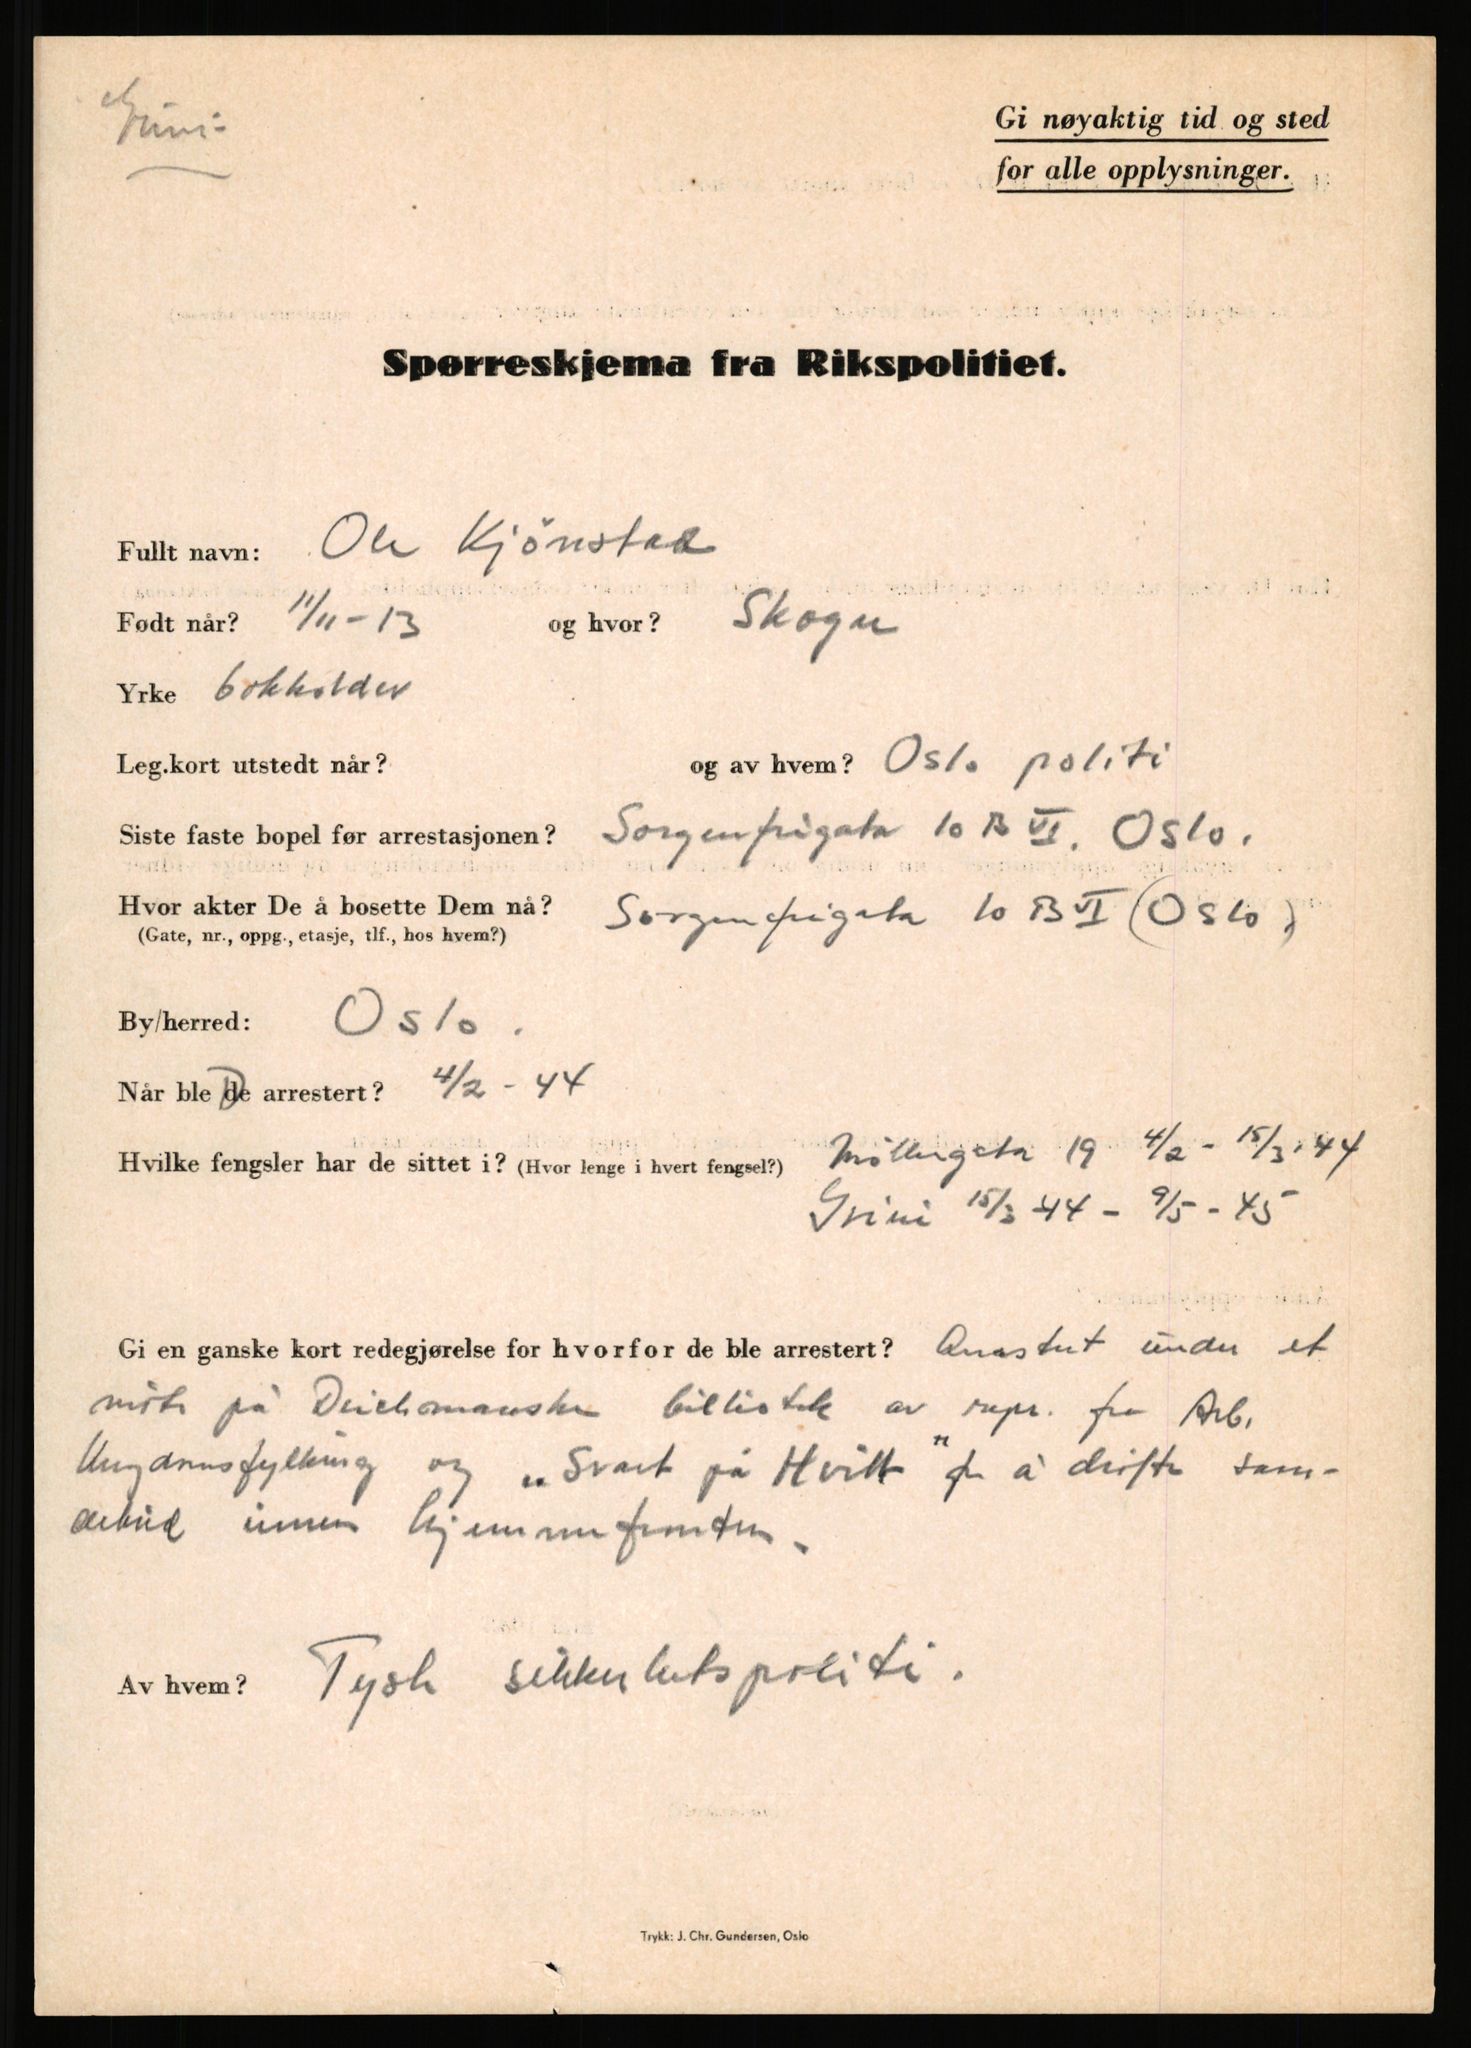 Grini
Gi nøyaktig tid og sted
for alle opplysninger.
Spørreskjema fra Rikspolitiet.
Fullt navn: Ole Kjönstad
Født når? 11/11-13 og hvor? Skogn
Yrke bokholder
Leg.kort utstedt når? og av hvem? Oslo politi
Siste faste bopel før arrestasjonen? Sorgenfrigata 10 B VI. Oslo.
Hvor akter De å bosette Dem nå? Sorgenfrigata 10 B VI (Oslo)
(Gate, nr., oppg., etasje, tlf., hos hvem?)
By/herred: Oslo.
Når ble De arrestert? 4/2 - 44
Hvilke fengsler har de sittet i? (Hvor lenge i hvert fengsel?) Möllergata 19 4/2 - 15/3.44
Grini 15/3-44 - 9/5-45
Gi en ganske kort redegjørelse for hvorfor de ble arrestert? Arrestert under et
möte på Deichmanske bibliotek av repr. fra Arb.
Ungdomsfylking og „Svart på Hvitt" for å dröfte sam-
arbeid innen hjemmefronten.
Av hvem? Tysk sikkerhetspoliti.
Trykk: J. Chr. Gundersen, Oslo